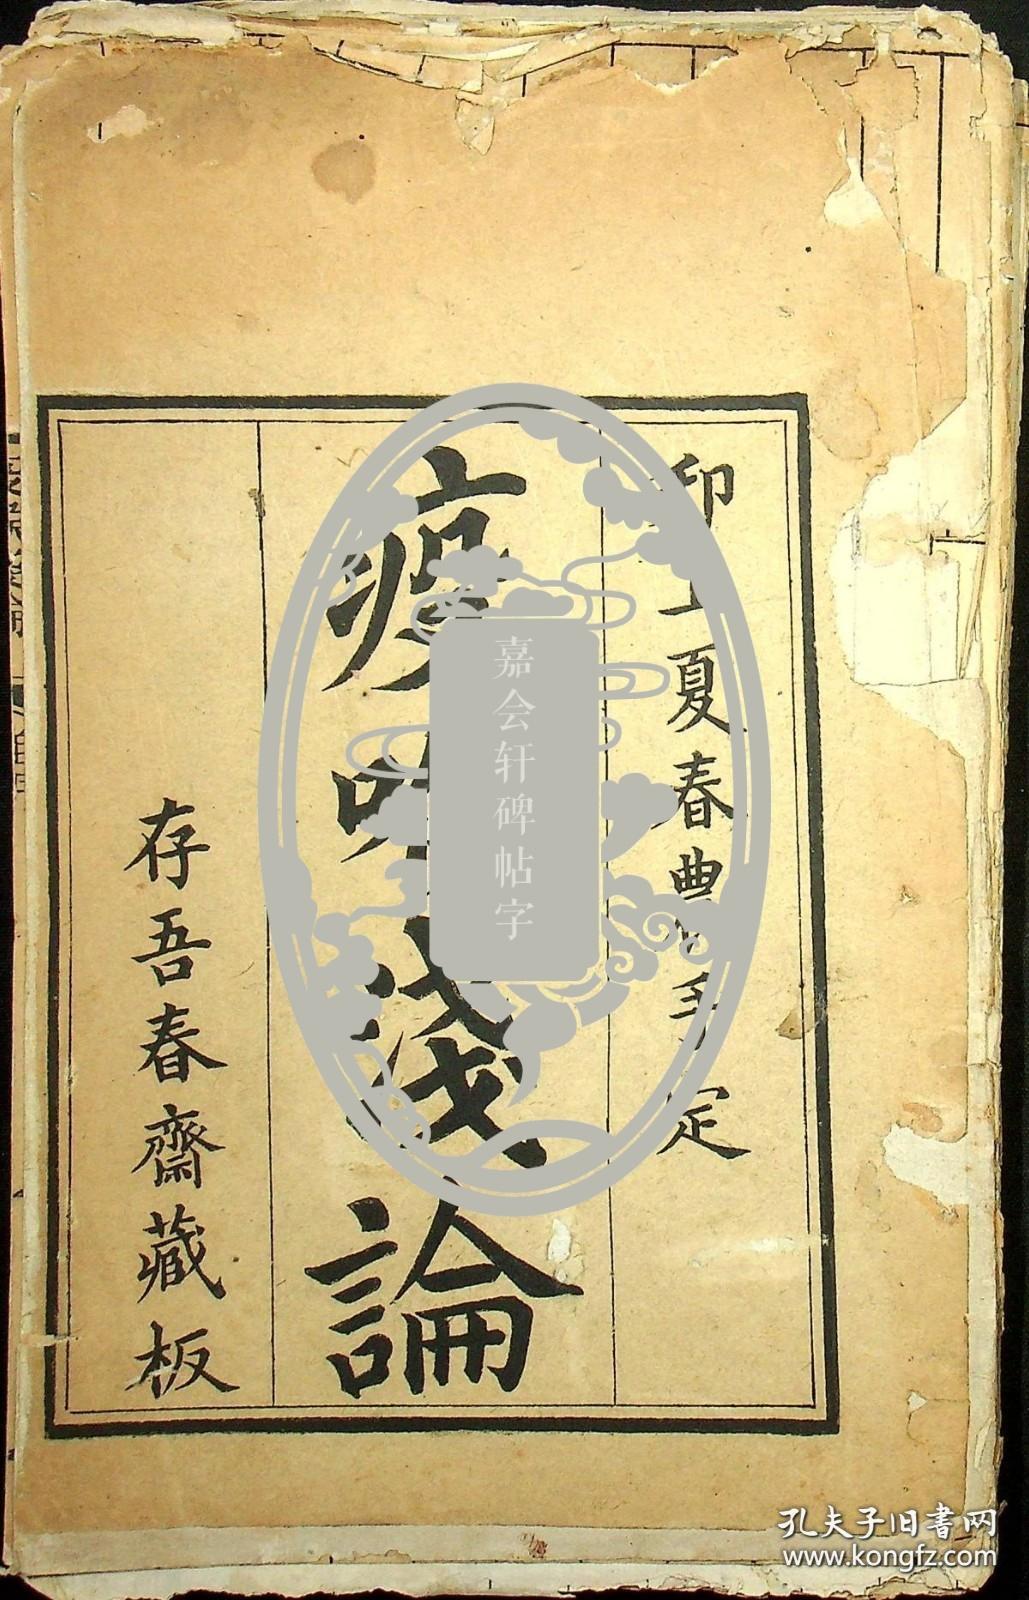 邗上夏春農手定
疫喉淺論
存吾春齋藏板
嘉会轩碑帖字
孔夫子旧書网
www.kongfz.com